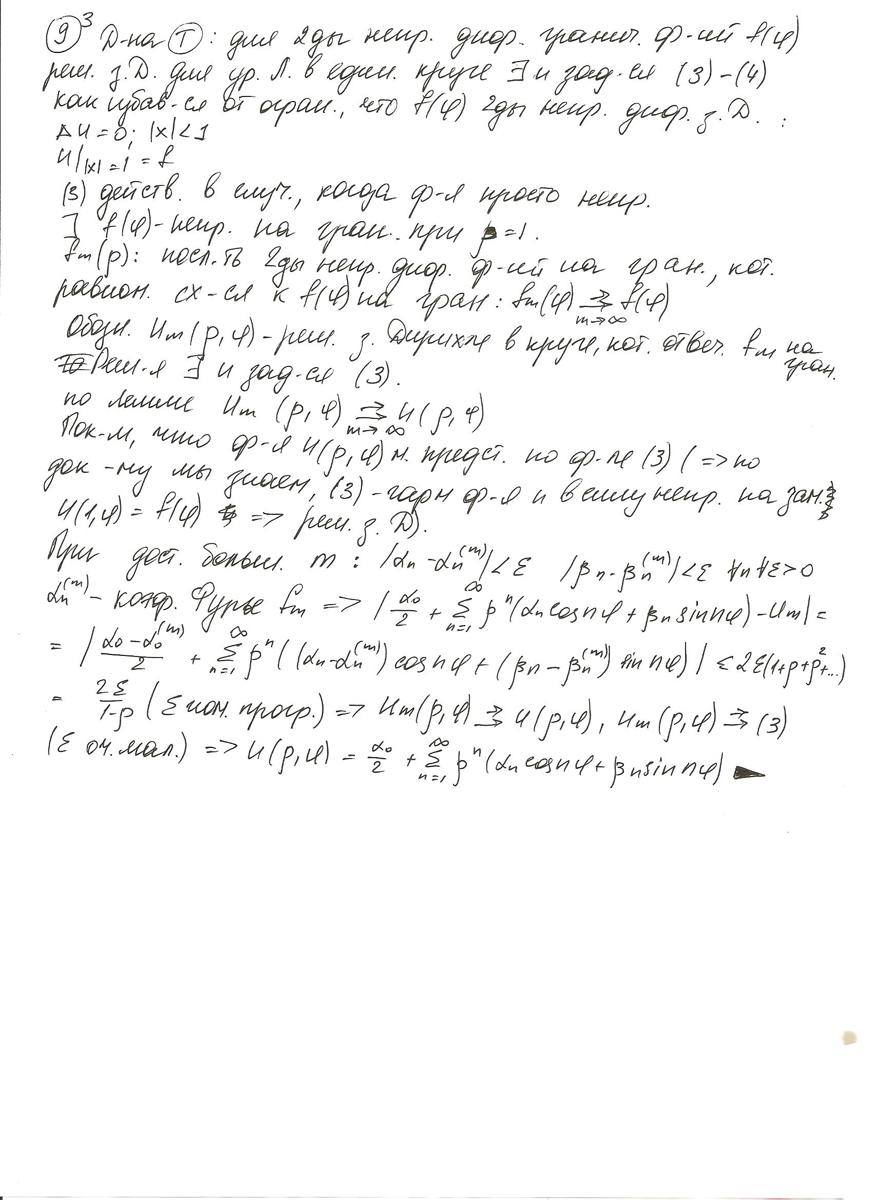 ⑨³ Д-на Ⓣ: для 2ды непр. диф. гранич. ф-ий f(φ)
реш. з.Д. для ур. Л. в един. круге ∃ и зад-ся (3)-(4)
как избав-ся от огран., что f(φ) 2ды непр. диф. з.Д. :
Δu = 0; |x| < 1
u|_{|x|=1} = f
(3) действ. в случ., когда ф-я просто непр.
] f(φ)-непр. на гран. при ρ=1.
f_m(ρ): посл-ть 2ды непр. диф. ф-ий на гран., кот.
равном. сх-ся к f(φ) на гран: f_m(φ) ⇉_{m→∞} f(φ)
Обозн. u_m(ρ,φ)-реш. з. Дирихле в круге, кот. отвеч. f_m на гран.
Реш-я ∃ и зад-ся (3).
по лемме u_m (ρ,φ) ⇉_{m→∞} u(ρ,φ)
Пок-м, что ф-я u(ρ,φ) м. предст. по ф-ле (3) (=> по
док-му мы знаем, (3)-гарм ф-я и в силу непр. на зам.
u(1,φ) = f(φ) => реш. з. Д).
При дост. больш. m: |αn - αn^{(m)}| < ε |βn - βn^{(m)}| < ε ∀n ∀ε>0
αn^{(m)} - коэф. Фурье f_m => |α₀/2 + Σ_{n=1}^{∞} ρ^n(αn cos nφ + βn sin nφ) - u_m| =
= |(α₀ - α₀^{(m)})/2 + Σ_{n=1}^{∞} ρ^n((αn - αn^{(m)}) cos nφ + (βn - βn^{(m)}) sin nφ)| ≤ 2ε(1+ρ+ρ²+...)
= 2ε/(1-ρ) (Σ геом. прогр.) => u_m(ρ,φ) ⇉ u(ρ,φ), u_m(ρ,φ) ⇉ (3)
(ε оч. мал.) => u(ρ,φ) = α₀/2 + Σ_{n=1}^{∞} ρ^n(αn cos nφ + βn sin nφ)